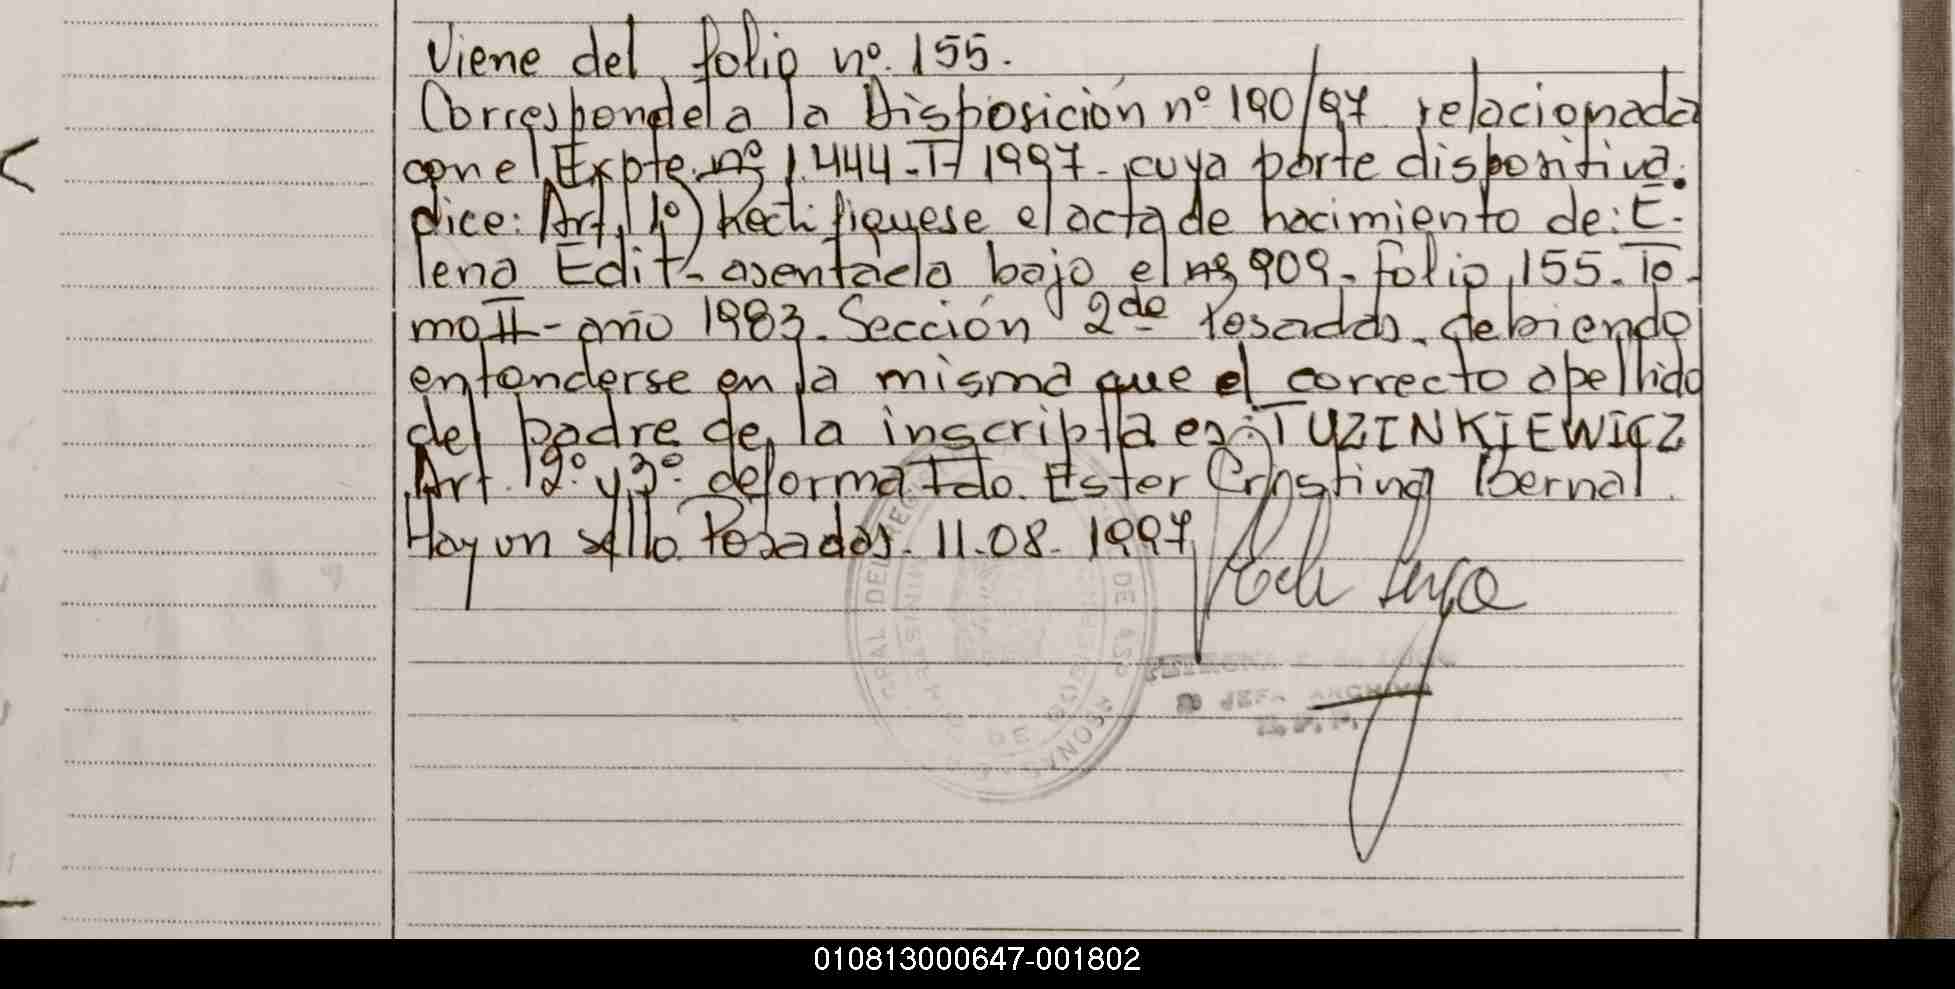 Viene del folio nº. 155.
Corresponde a la Disposición nº 190/97 relacionada
con el Expte. nº 1.444-T-1997- cuya parte dispositiva.
dice: Art. 1º) Rectifiquese el acta de nacimiento de: E-
lena Edit- asentada bajo el nº 909- folio 155- To-
mo II- año 1983. Sección 2da Posadas- debiendo
entenderse en la misma que el correcto apellido
del padre de la inscripta es: TUZINKIEWICZ
Art. 2º y 3º. de forma Fdo. Ester Cristina Bernal.
Hay un sello. Posadas. 11.08.1997
JEFA ARCHIVO
010813000647-001802